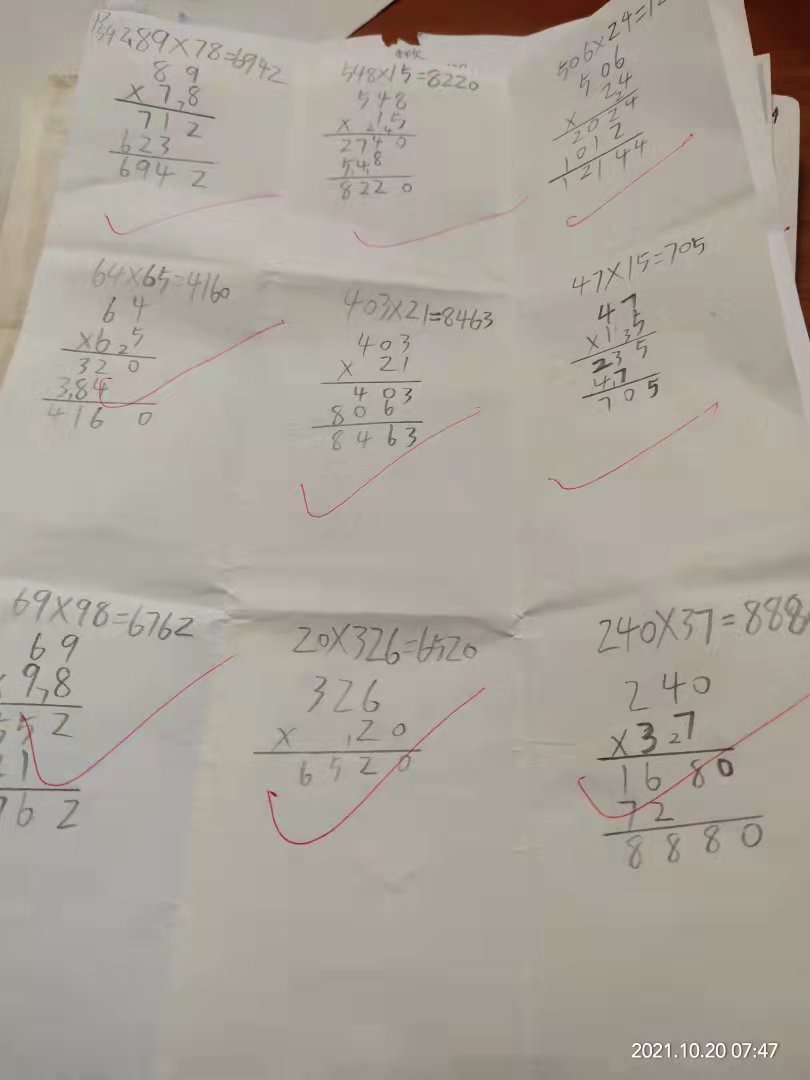 89×78=6942
8 9
× 7,8
7 1 2
6 2 3
6 9 4 2
548×15=8220
5 4 8
× 1 5
2 7 4 0
5 4 8
8 2 2 0
506×24=12
5 0 6
× 2 4
2 0 2 4
1 0 1 2
1 2 1 4 4
64×65=4160
6 4
×6 2 5
3 2 0
3,8 4
4 1 6 0
403×21=8463
4 0 3
× 2 1
4 0 3
8 0 6
8 4 6 3
47×15=705
4 7
×1 3 5
2 3 5
4 7
7 0 5
69×98=6762
6 9
× 9,8
5 5 2
2 1
7 6 2
20×326=6520
3 2 6
× ,2 0
6 5 2 0
240×37=888
2 4 0
×3 2 7
1 6 8 0
7 2
8 8 8 0
2021.10.20 07:47